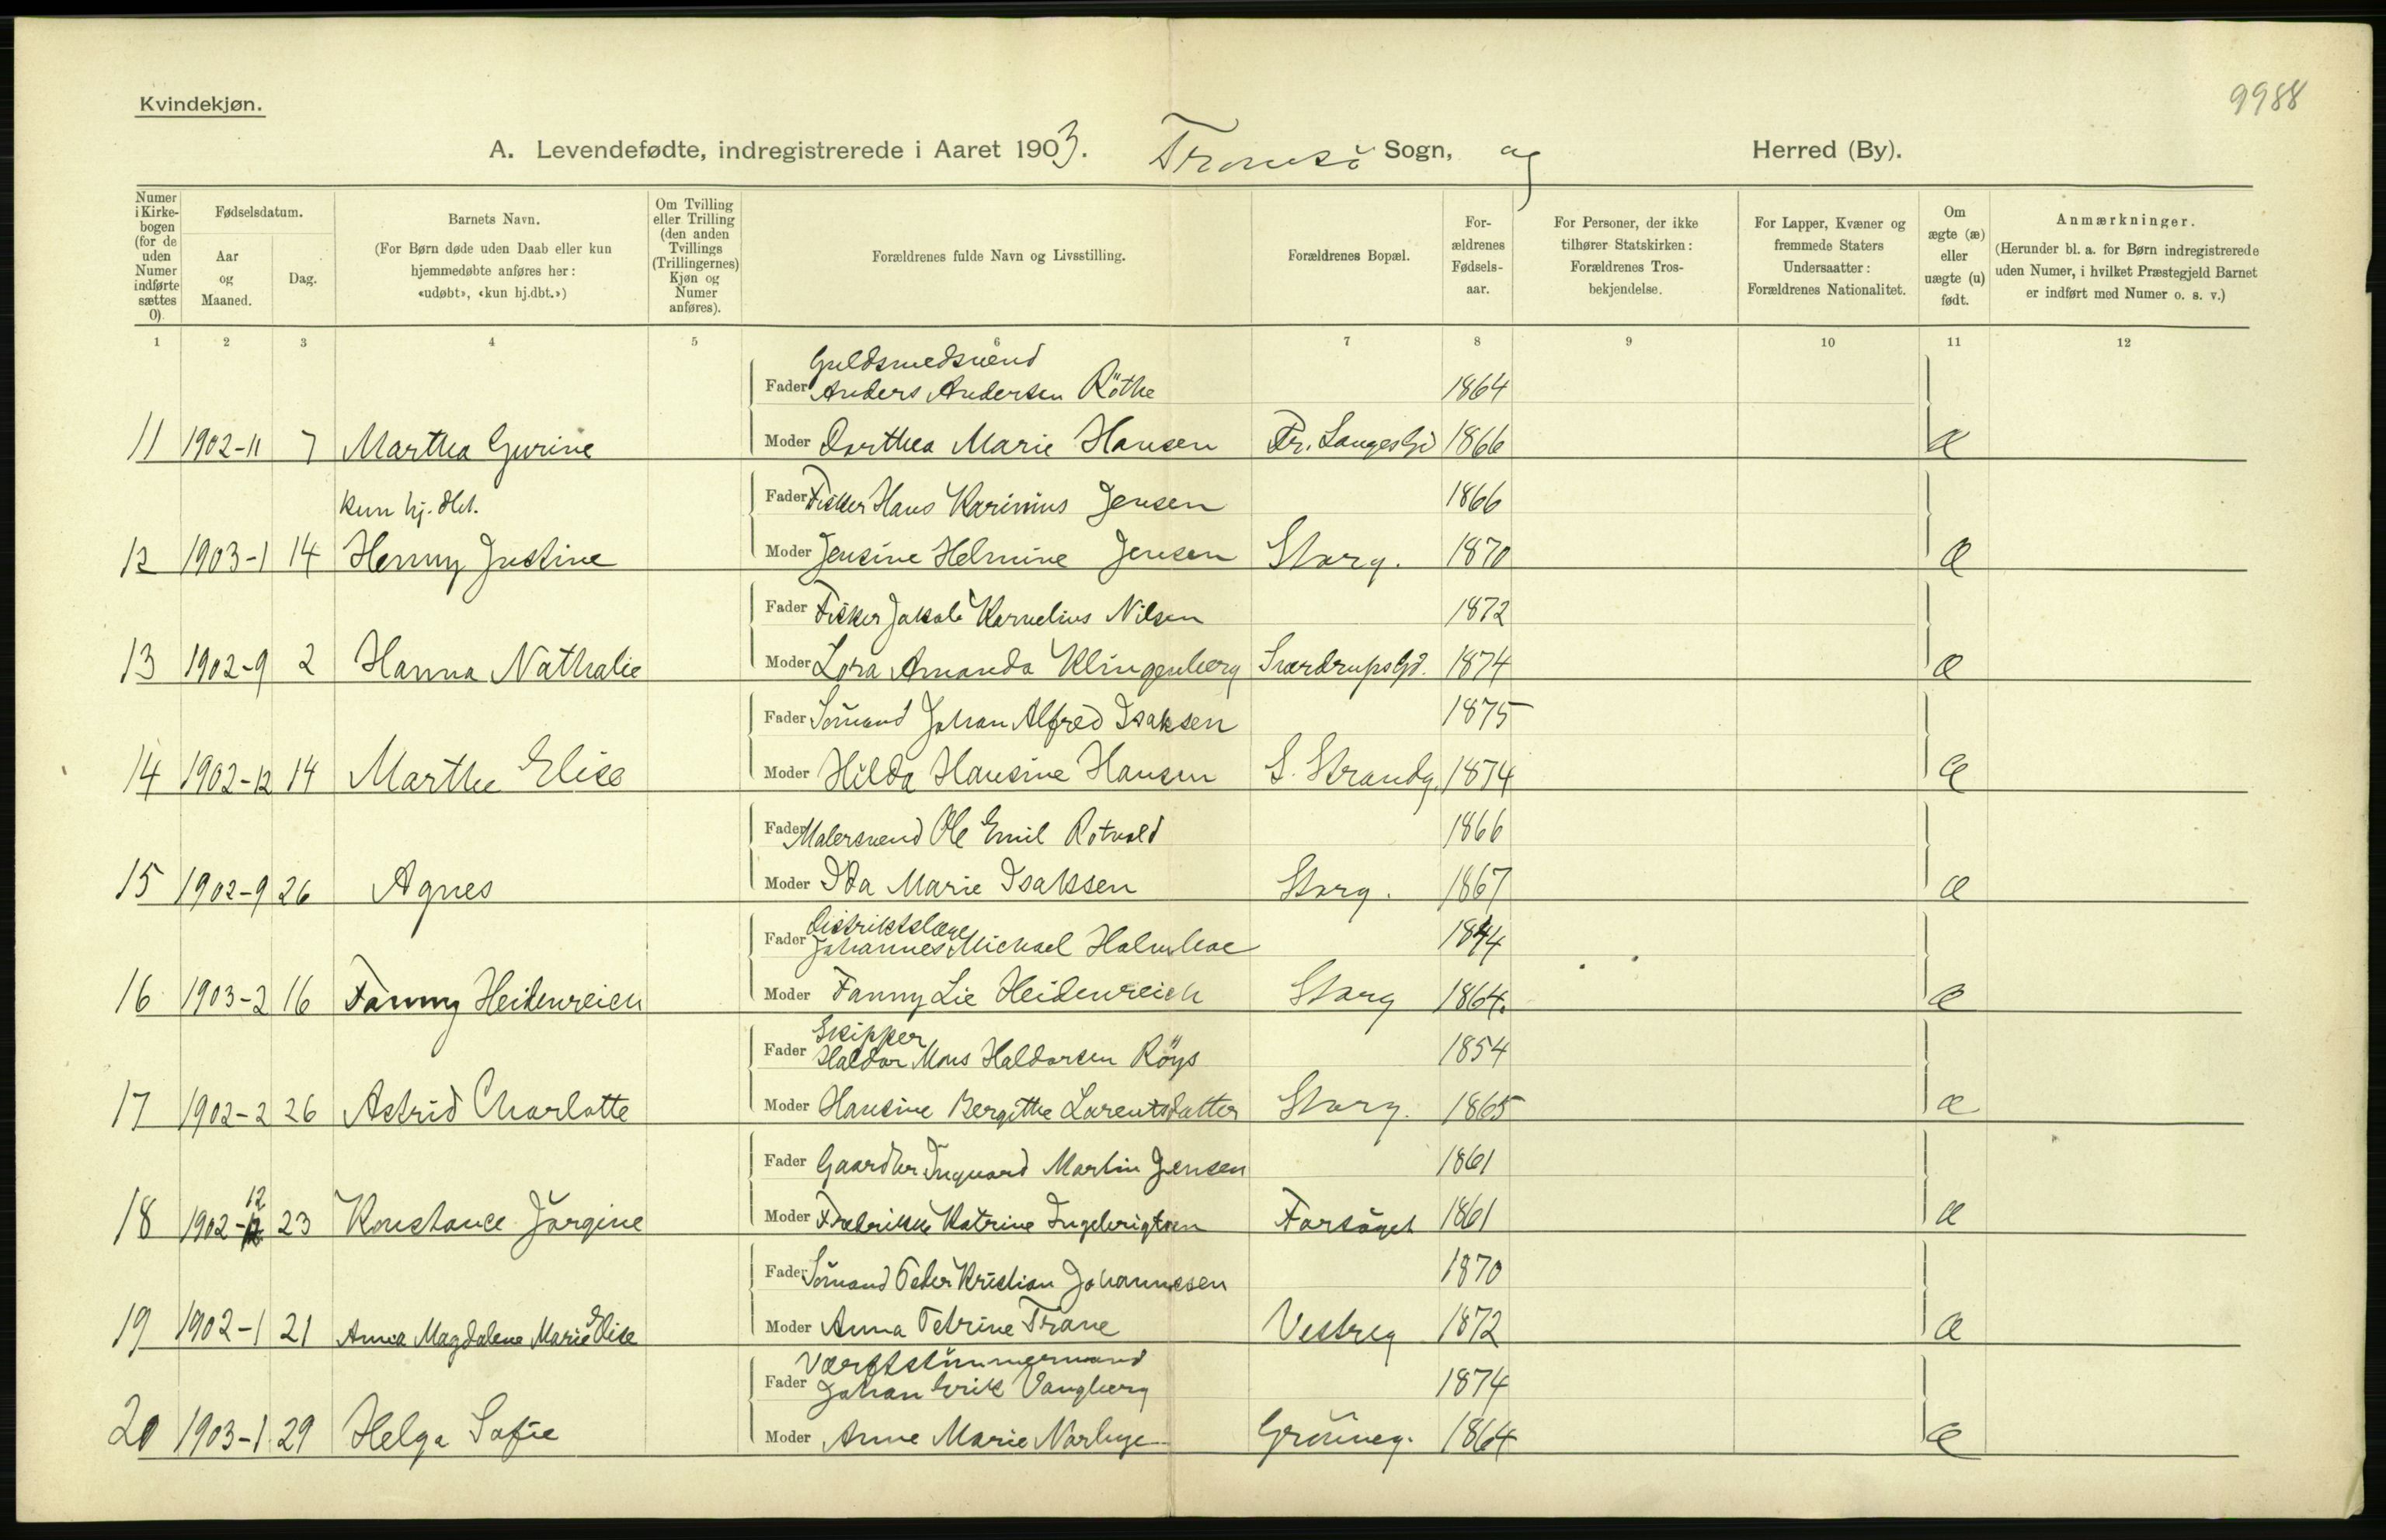 Kvindekjøn.
9988
A. Levendefødte, indregistrerede i Aaret 1903. Tromsö Sogn, og Herred (By).
Numer i Kirkebogen (for de uden Numer indførte sættes 0).
Fødselsdatum.
Aar og Maaned.
Dag.
Barnets Navn.
(For Børn døde uden Daab eller kun hjemmedøbte anføres her: «udøbt», «kun hj.dbt.»)
Om Tvilling eller Trilling (den anden Tvillings (Trillingernes) Kjøn og Numer anføres).
Forældrenes fulde Navn og Livsstilling.
Forældrenes Bopæl.
Forældrenes Fødselsaar.
For Personer, der ikke tilhører Statskirken: Forældrenes Trosbekjendelse.
For Lapper, Kvæner og fremmede Staters Undersaatter: Forældrenes Nationalitet.
Om ægte (æ) eller uægte (u) født.
Anmærkninger.
(Herunder bl. a. for Børn indregistrerede uden Numer, i hvilket Præstegjeld Barnet er indført med Numer o. s. v.)
1 2 3 4 5 6 7 8 9 10 11 12
Guldsmedsvend
Fader Anders Andersen Röthe 1864
11 1902-11 7 Martha Gurine Moder Dorthea Marie Hansen Fr. Langesgd 1866 æ
kun hj. dbt. Fader Fisker Hans Karinius Jensen 1866
12 1903-1 14 Henny Justine Moder Jensine Helmine Jensen Storg. 1870 æ
Fader Fisker Jakob Kornelius Nilsen 1872
13 1902-9 2 Hanna Nathalie Moder Lora Amanda Klingenberg Sverdrupsgd. 1874 æ
Fader Sömand Johan Alfred Isaksen 1875
14 1902-12 14 Marthe Elise Moder Hilda Hansine Hansen S. Strandg. 1874 æ
Fader Malersvend Ole Emil Rotvold 1866
15 1902-9 26 Agnes Moder Ida Marie Isaksen Storg. 1867 æ
Distriktslæge
Fader Johannes Michael Holmboe 1844
16 1903-2 16 Fanny Heidenreich Moder Fanny Lie Heidenreich Storg 1864. æ
Skipper
Fader Haldor Mons Haldorsen Röys 1854
17 1902-2 26 Astrid Charlotte Moder Hansine Bergithe Lorentsdatter Storg. 1865 æ
Fader Gaardbr Ingvard Martin Jensen 1861
12
18 1902-12 23 Konstance Jörgine Moder Fredrikke Katrine Ingebrigtsen Forsöget 1861 æ
Fader Sömand Peder Kristian Johannesen 1870
19 1902-1 21 Anna Magdalene Marie Elise Moder Anna Petrine Trane Vestreg 1872 æ
Værftstömmermand
Fader Johan Erik Vangberg 1874
20 1903-1 29 Helga Sofie Moder Anne Marie Norbye Grönneg. 1864 æ